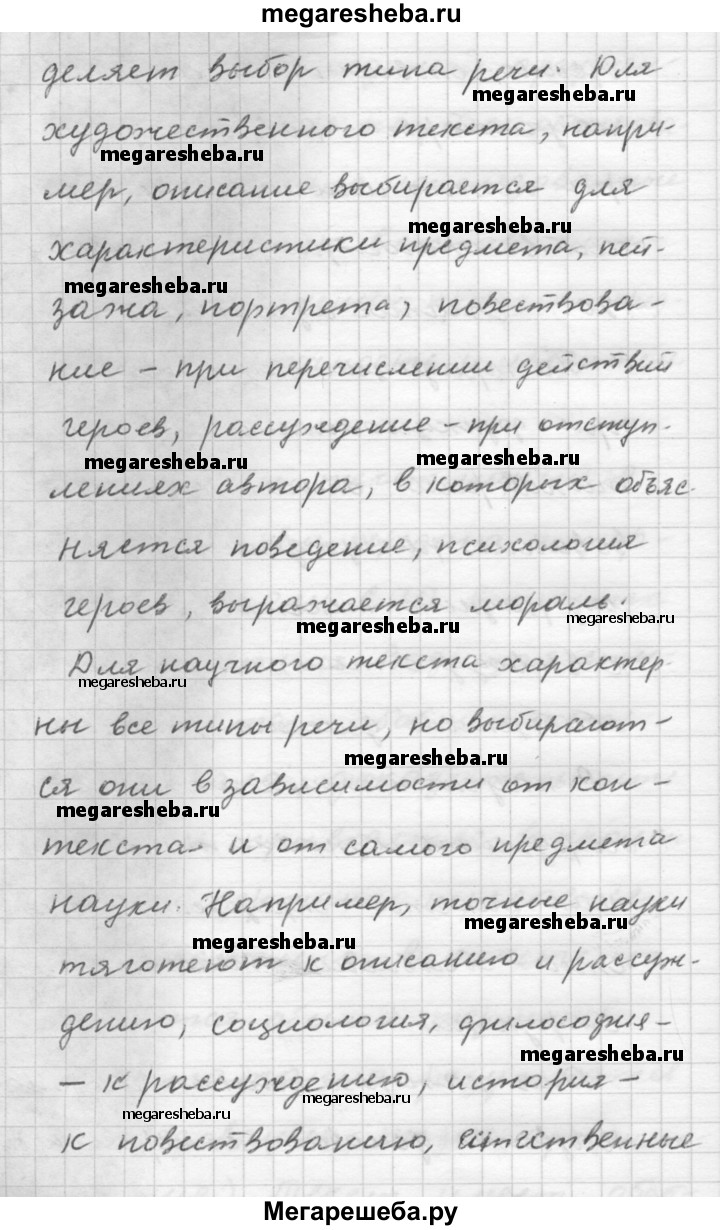 megaresheba.ru
деляет выбор типа речи. Для
megaresheba.ru
художественного текста, напри-
megaresheba.ru
мер, описание выбирается для
megaresheba.ru
характеристики предмета, пей-
megaresheba.ru
зажа, портрета, повествова-
ние - при перечислении действий
героев, рассуждение - при отступ-
megaresheba.ru megaresheba.ru
лениях автора, в которых объяс-
няется поведение, психология
героев, выражается мораль.
megaresheba.ru megaresheba.ru
Для научного текста характер-
megaresheba.ru
ны все типы речи, но выбирают-
megaresheba.ru
ся они в зависимости от кон-
megaresheba.ru
текста и от самого предмета
науки. Например, точные науки
megaresheba.ru megaresheba.ru
тяготеют к описанию и рассуж-
дению, социология, философия -
megaresheba.ru
- к рассуждению, история -
megaresheba.ru megaresheba.ru
к повествованию, естественные
Мегарешеба.ру